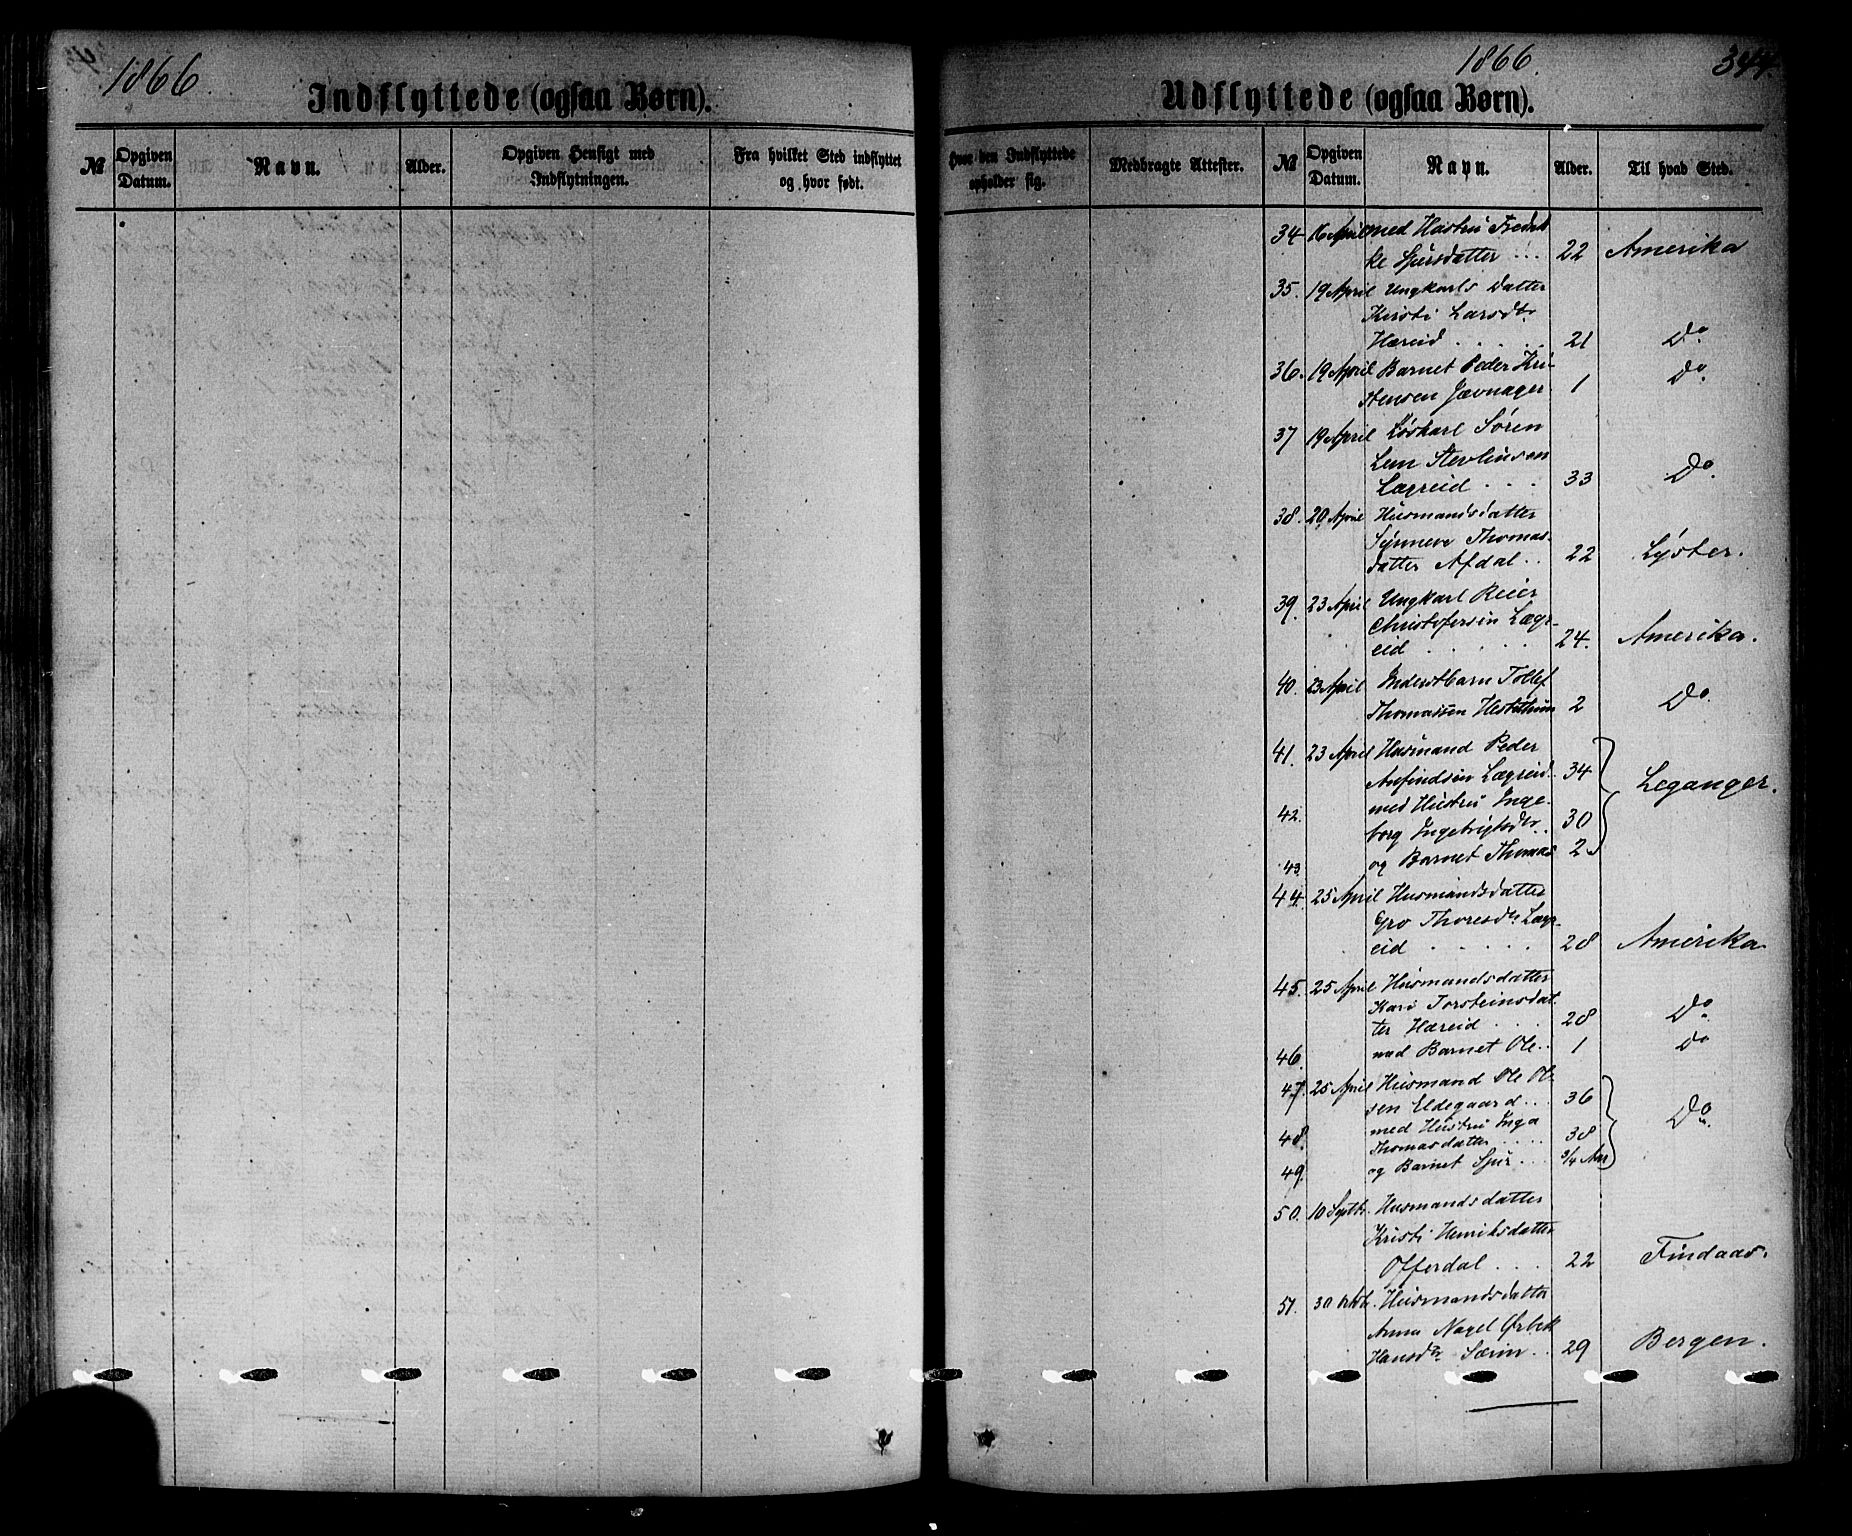 1866
Indflyttede (ogsaa Børn).
№ Opgiven Datum. Navn. Alder. Opgiven Hensigt med Indflytningen. Fra hvilket Sted indflyttet og hvor født.
1866. 344.
Udflyttede (ogsaa Børn).
Hvor den Indflyttede opholder sig. Medbragte Attester. № Opgiven Datum. Navn. Alder. Til hvad Sted.
34 16 April med Hustru Fredrik
ke Sjursdatter ... 22 Amerika
35. 19 April Ungkarls Datter
Kirsti Larsdtr
Hæreid ..... 21 Do
36. 19 April Barnet Peder Kri-
stensen Jævnager 1 Do
37 19 April Løskarl Søren
Lem
Lægreid ... 33 Do.
38. 20 April Husmandsdatter
Synneve Thomas-
datter Afdal .. 22 Lyster.
39. 23 April Ungkarl Reier
Christofersen Læg-
reid ..... 24. Amerika.
40. 23 April Inderstbarn Tollef
Thomassen 2 Do.
41. 23 April Husmand Peder
Anfindsen Lægreid. 34
42. med Hustru Inge-
borg Ingebrigtsdtr.. 30 Leganger.
43. og Barnet Thomas 2
44. 25 April Husmandsdatter
Gro Thoresdtr Læg-
reid ..... 28 Amerika
45. 25 April Husmandsdatter
Kari Torsteinsdat-
ter Hæreid .... 28 Do.
46. med Barnet Ole.. 1 Do
47. 25 April Husmand Ole Ol-
sen Eldegaard... 36
48. med Hustru Inga
Thomasdatter .... 38 Do.
49. og Barnet Sjur... 3/4 Aar
50. 10 Septbr. Husmandsdatter
Kristi Henriksdatter
Offerdal .... 22 Findaas.
51. 30 Octbr. Husmandsdatter
Anna Nagel Ørbek
Hansdtr .. 29 Bergen.